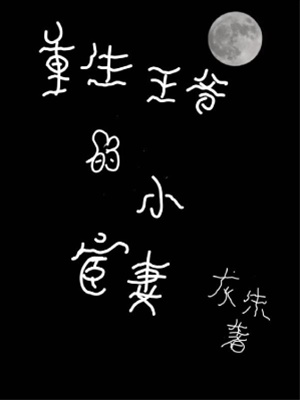 重生王爷
的
小
宦妻
灰
著